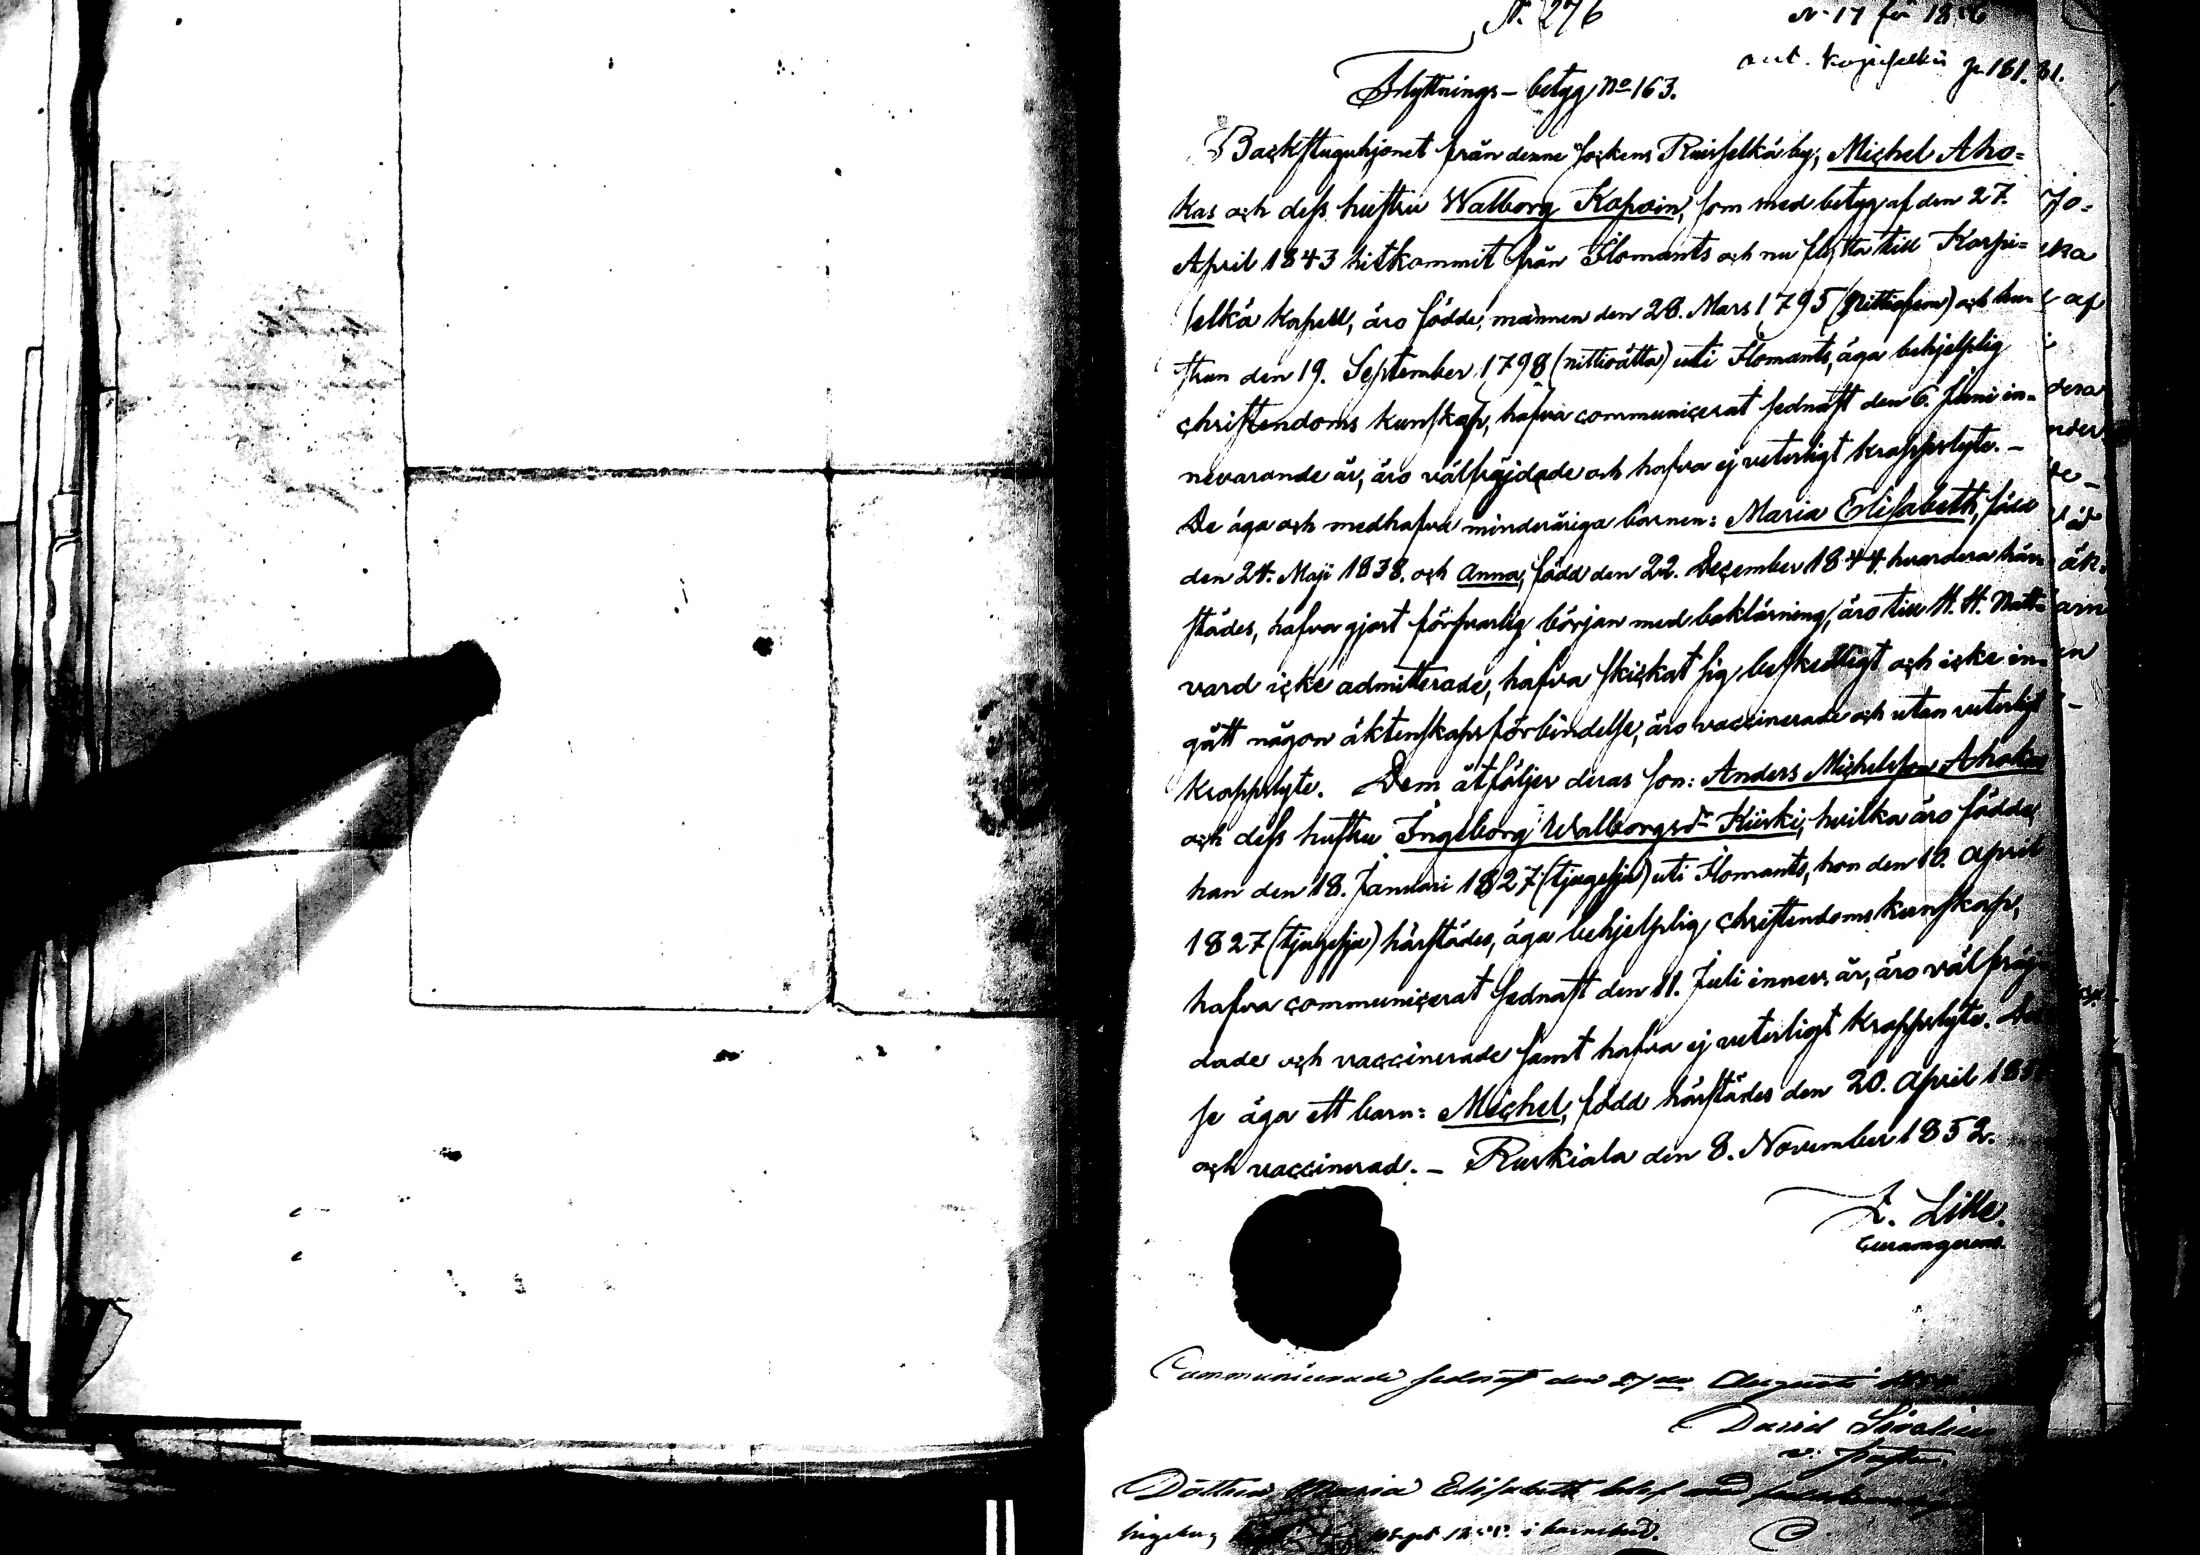 N. 276
N. 17 för
p. 181.
Flyttnings-betyg No 163.
Backstuguhjonet från denne Sockens Ruisselkä by, Michel Aho=
kas och dess hustru Walborg Kapain, som med betyg af den 27.
April 1843 hitkommit från Ilomants och nu flytta till Korpi=
selkä kapell, äro födde, mannen den 28. Mars 1795 (nittiofem) och hu-
strun den 19. September 1798 (nittioåtta) uti Ilomants, äga behjelplig
christendoms kunskap, hafva communicerat sednast den 6. Juni in-
nevarande år, äro välfrejdade och hafva ej veterligt kroppslyte. -
De äga och medhafva minderåriga barnen: Maria Elisabeth, född
den 24. Maji 1838. och Anna, född den 22. December 1844. hvardera här-
städes, hafva gjort försvarlig början med boklärning, äro till H. H. Natt-
vard icke admitterade, hafva skickat sig beskedligt och icke in-
gått någon äktenskapsförbindelse, äro vaccinerade och utan veterligt
kroppslyte. Dem åtföljer deras son: Anders Michelsson Ahokas
och dess hustru Ingeborg Walborgsdr Kiiski, hvilka äro födde,
han den 18. Januari 1827 (tjugesju) uti Ilomants, hon den 10. April
1827 (tjugesju) härstädes, äga behjelplig christendoms kunskap,
hafva communicerat sednast den 11. Juli innev. år, äro välfräj-
dade och vaccinerade samt hafva ej veterligt kroppslyte. De
se äga ett barn: Michel, född härstädes den 20. April 185
och vaccinerad. - Ruskiala den 8. November 1852.
Z. Lille.
Curamgerens.
Communicerade sednast den 27de Augusti
David
v. pastor.
Dottren Maria Elisabeth blef
Ingeborg i barnsbörd.